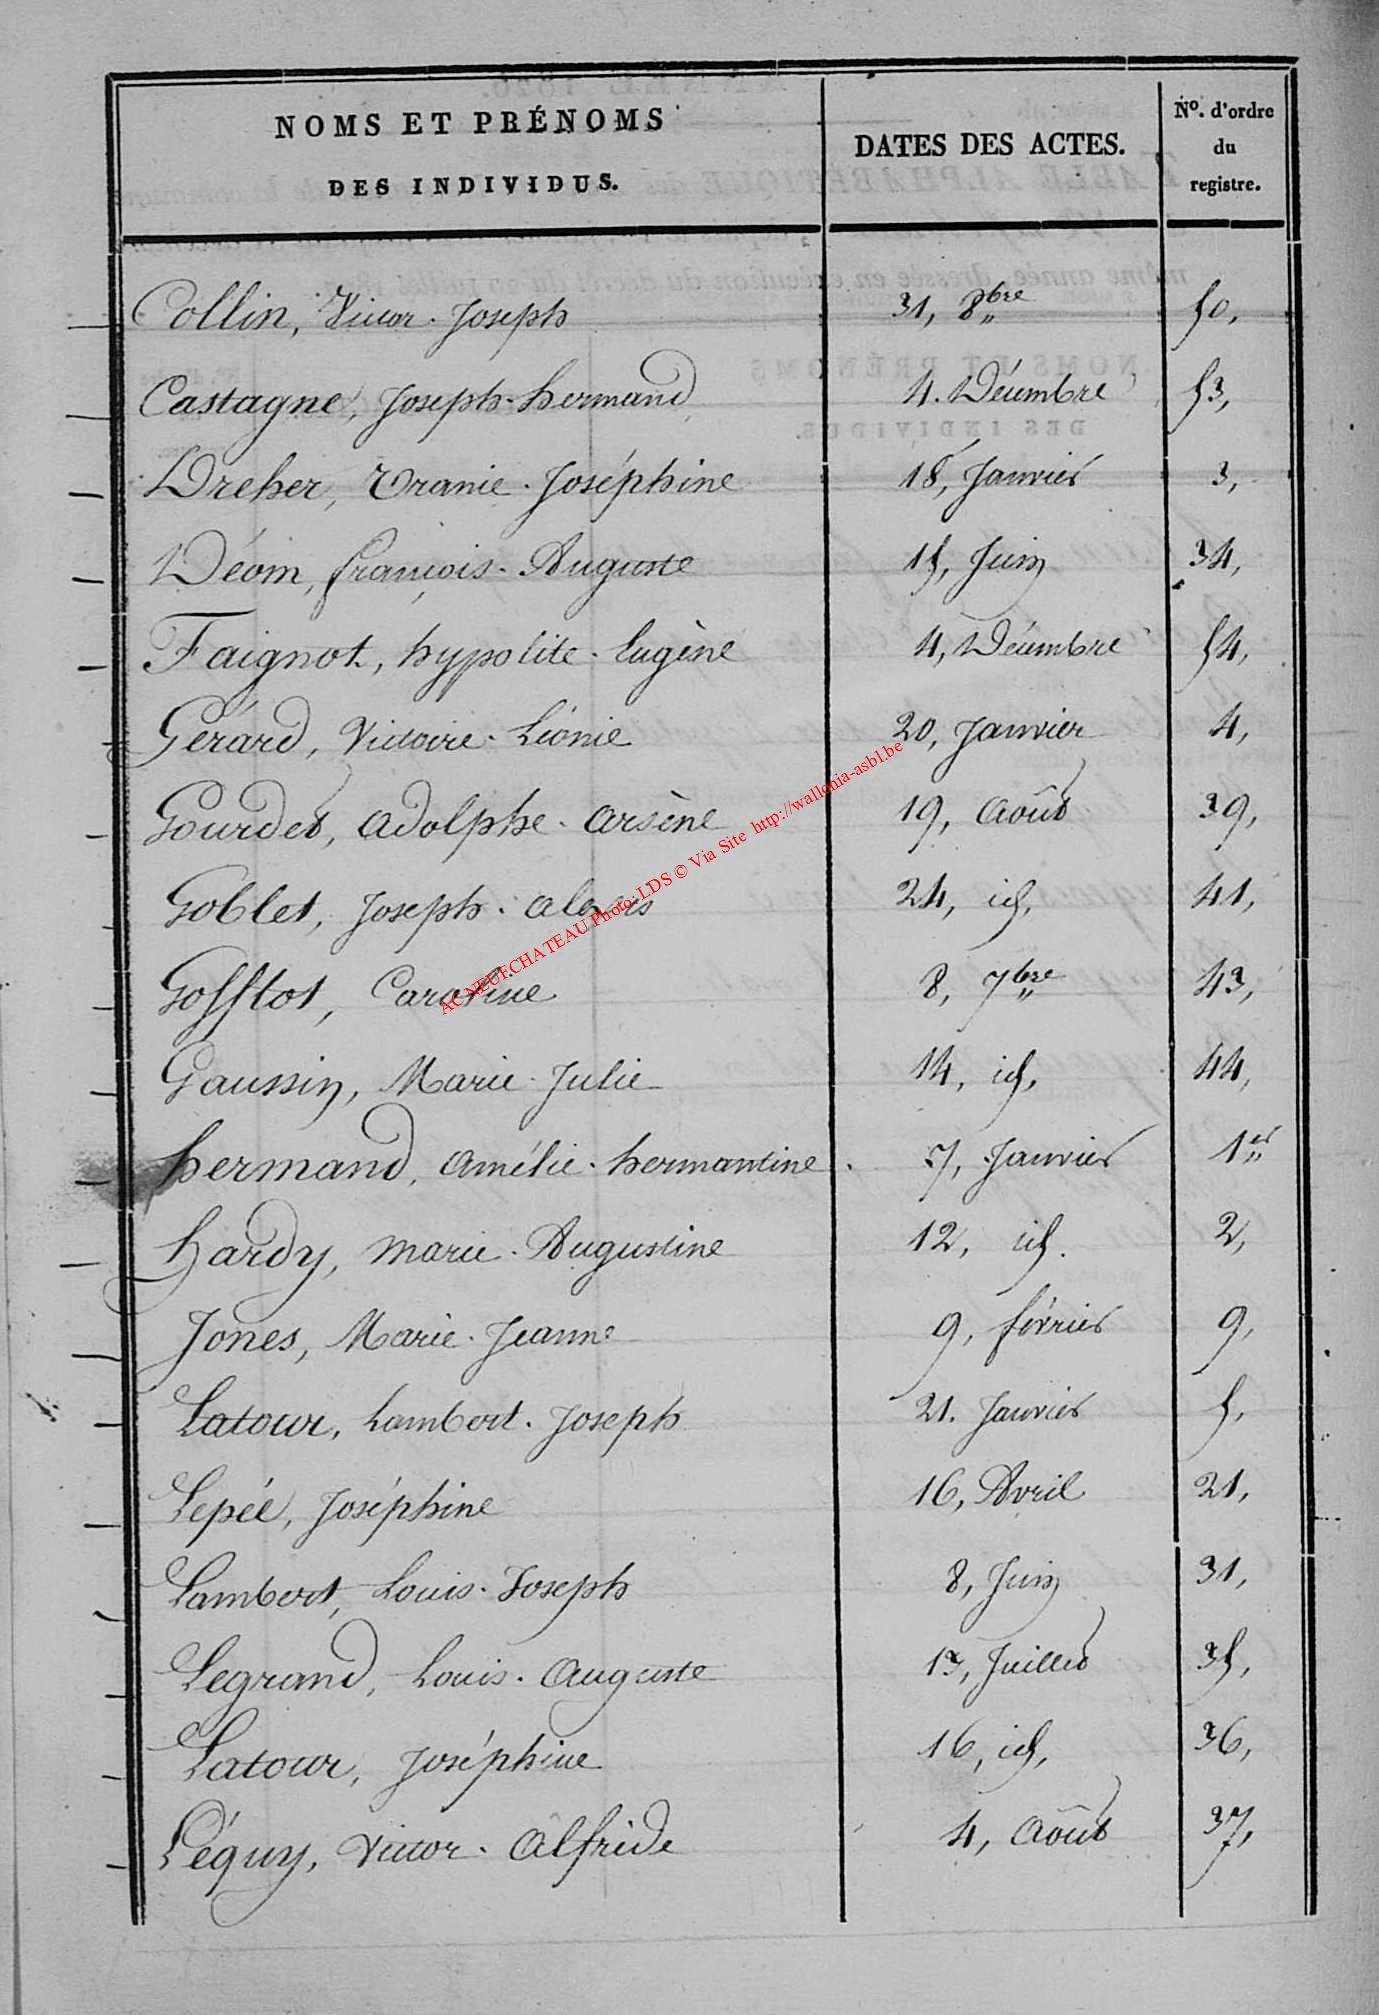 NOMS ET PRÉNOMS
DES INDIVIDUS.
DATES DES ACTES.
No. d'ordre
du
registre.
Collin, Victor. Joseph 31, 8bre 50,
Castagne, Joseph. hermand 4. Décembre 53,
Dreher, Uranie. Joséphine 18, Janvier 3,
Déom, françois. Auguste 15, Juin 34,
Faignot, hypolite. Eugène 4, Décembre 54,
Gérard, Victoire. Léonie 20, Janvier 4,
Gourdet, Adolphe. Arsène 19, Août 39,
Goblet, Joseph. Alexis 24, id, 41,
Gofflot, Caroline 8, 7bre 43,
Gaussin, Marie. Julie 14, id, 44,
hermand, Amélie. hermantine. 7, Janvier 1er
hardy, Marie. Augustine 12, id. 2,
Jones, Marie. Jeanne 9, février 9,
Latour, Lambert. Joseph 21. Janvier 5,
Lepée, Joséphine 16, Avril 21,
Lambert, Louis. Joseph 8, Juin 31,
Legrand, Louis. Auguste 13, Juillet 35,
Latour, Joséphine 16, id, 36,
Léquy, Victor. Alfride 4, Août 37,
ACNEUFCHATEAU Photo: LDS © Via Site http://wallonia-asbl.be